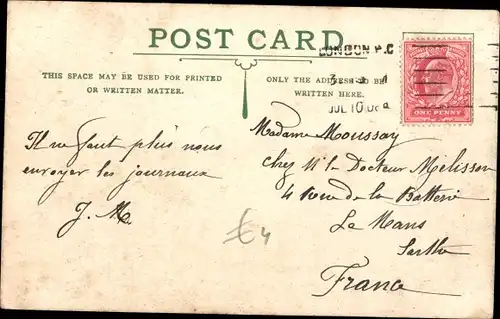 POST CARD
THIS SPACE MAY BE USED FOR PRINTED
OR WRITTEN MATTER.
ONLY THE ADDRESS TO BE
WRITTEN HERE.
LONDON
JUL 10
ONE PENNY
Il ne faut plus nous
envoyer les journaux
J. M.
Madame Moussay
chez Mr le Docteur Melisson
4 Rue de la Batterie
Le Mans
Sarthe
France
£4